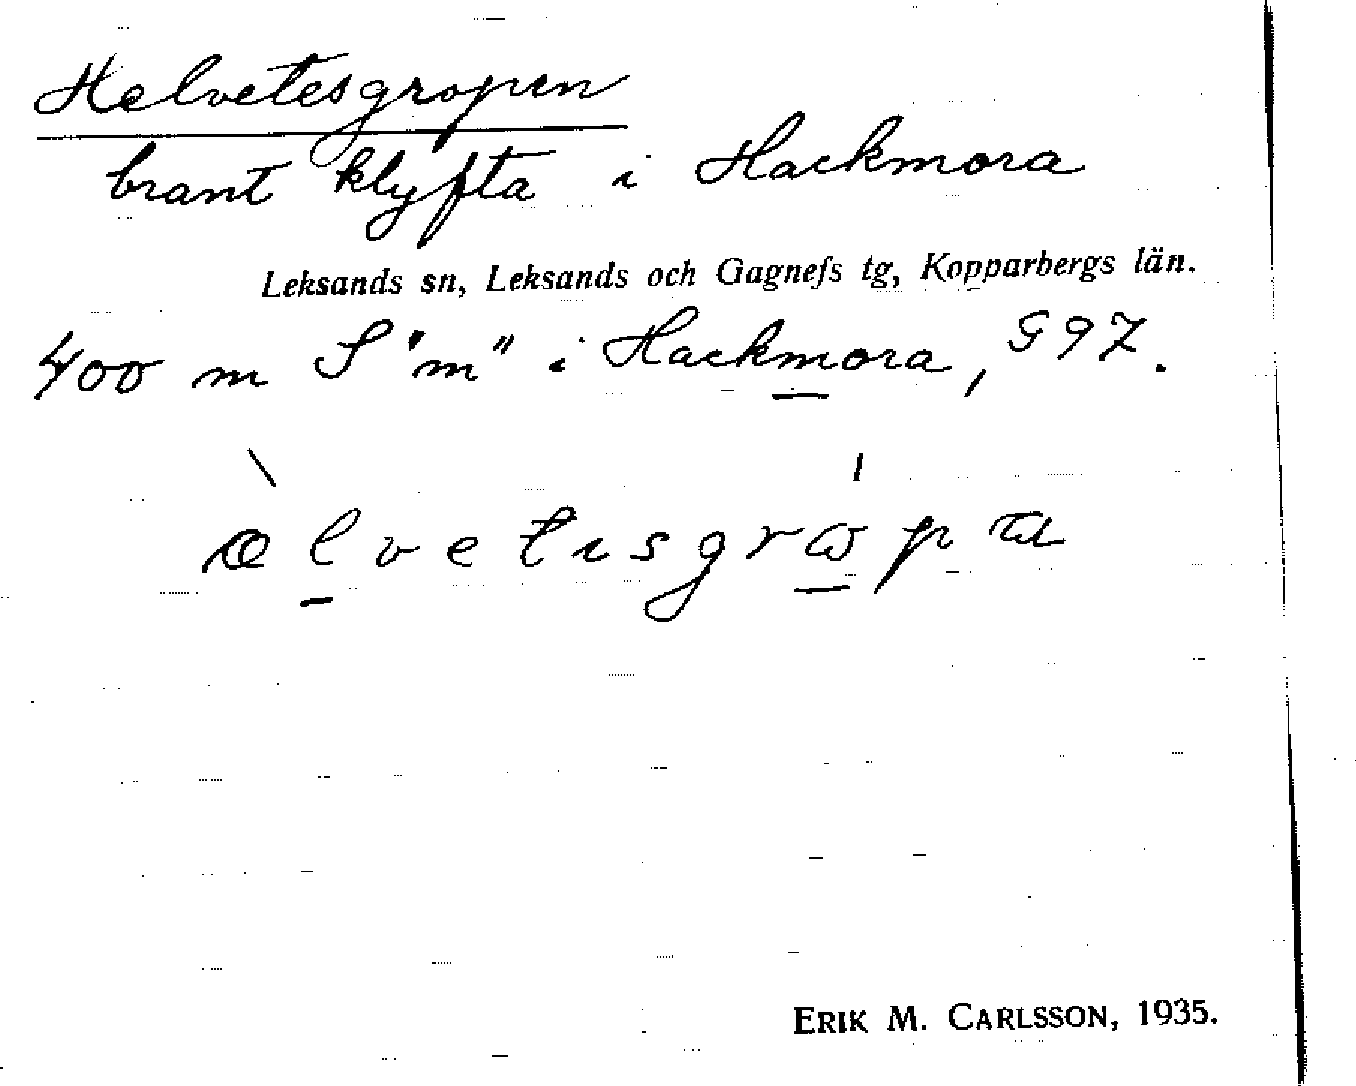 Helvetesgropen
brant klyfta i Hackmora
Leksands sn, Leksands och Gagnefs tg, Kopparbergs län.
400 m S "m" i Hackmora, G9Z.
ælvetisgrωpa
ERIK M. CARLSSON, 1935.